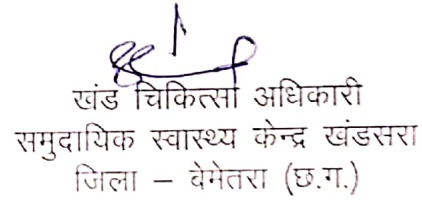 खंड चिकित्सा अधिकारी
समुदायिक स्वास्थ्य केन्द्र खंडसरा
जिला – वेमेतरा (छ.ग.)